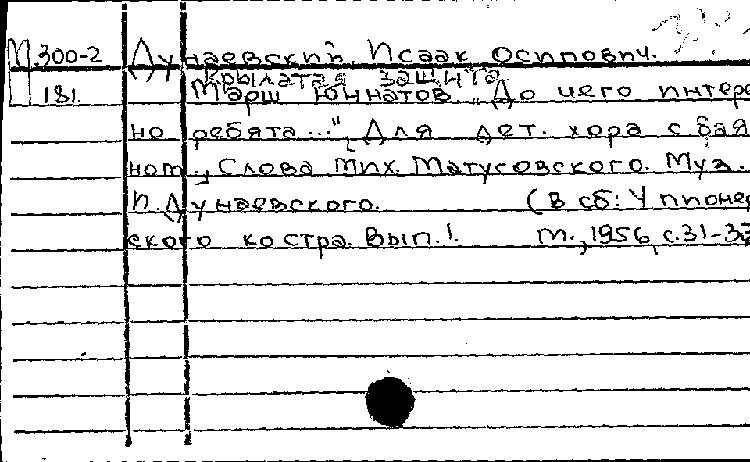 М.300-2 Дунаевский, Исаак Осипович.
Крылатая защита
181. Марш юннатов. „До чего интерес
но ребята...". Для дет. хора с бая
ном., Слова Мих. Матусовского. Муз.
И. Дунаевского. (В сб: У пионер
ского костра. Вып. I. М., 1956, с.31-33